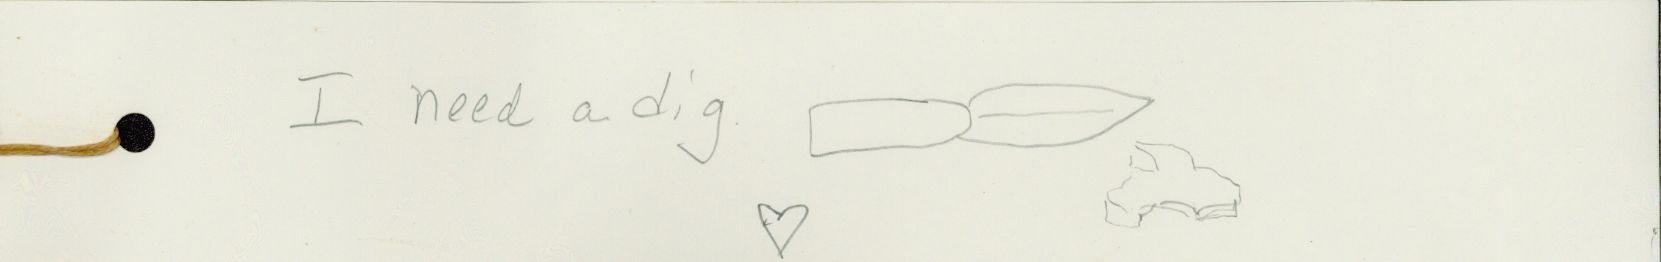 I need a dig.